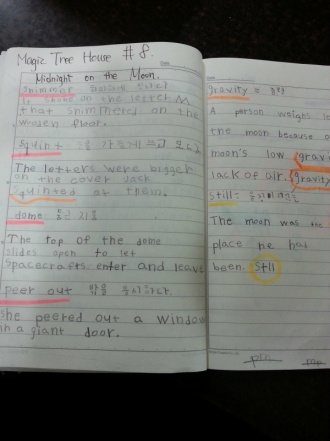 Magic Tree House #8.
Midnight on the Moon.
shimmer
It shone on the letter M
that shimmered on the
wooden floor.
squint 눈을 가늘게 뜨고 보다
The letters were bigger
on the cover. Jack
squinted at them.
dome: 둥근 지붕
The top of the dome
slides open to let
spacecrafts enter and leave
peer out 밖을 응시하다.
she peered out a window
in a giant door.
gravity = 중력
A person weighs le
the moon because o
moon's low grav
lack of air. gravity
still:
The moon was the
place he had
been. still